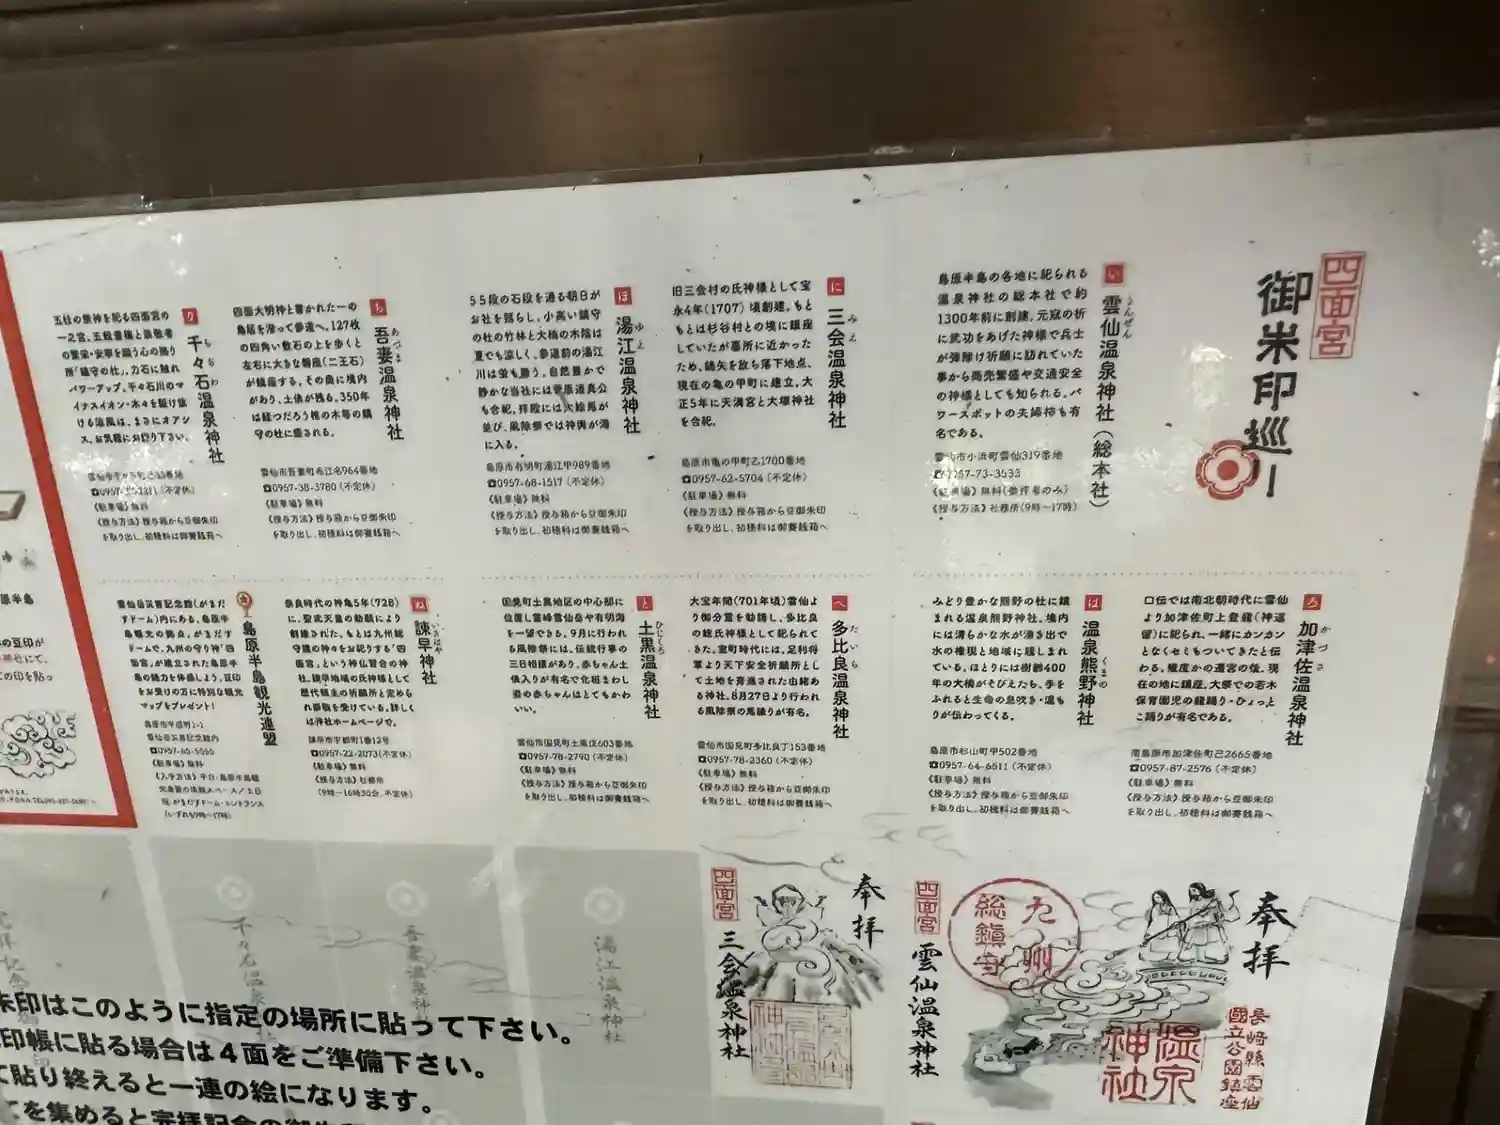 四面宮
御米印巡り
い
雲仙温泉神社（総本社）
うんぜん
島原半島の各地に祀られる
温泉神社の総本社で約
1300年前に創建。元寇の折
に武功をあげた神様で兵士
が弾除け祈願に訪れていた
事から商売繁盛や交通安全
の神様としても知られる。パ
ワースポットの夫婦柿も有
名である。
雲仙市小浜町雲仙319番地
☎0957-73-3533
《駐車場》無料(参拝者のみ)
《授与方法》社務所(9時～17時)
に
三会温泉神社
みえ
旧三会村の氏神様として宝
永4年(1707)頃創建。もと
もとは杉谷村との境に鎮座
していたが墓所に近かった
ため、鏑矢を放ち落下地点、
現在の亀の甲町に建立。大
正5年に天満宮と大塚神社
を合祀。
島原市亀の甲町乙1700番地
☎0957-62-5704(不定休)
《駐車場》無料
《授与方法》授与箱から豆御朱印
を取り出し、初穂料は御賽銭箱へ
ほ
湯江温泉神社
ゆえ
55段の石段を通る朝日が
お社を照らし、小高い鎮守
の杜の竹林と大楠の木陰は
夏でも涼しく、参道前の湯江
川は蛍も舞う。自然豊かで
静かな当社には菅原道真公
も合祀。拝殿には大絵馬が
並び、風除祭では神輿が海
に入る。
島原市有明町湯江甲989番地
☎0957-68-1517(不定休)
《駐車場》無料
《授与方法》授与箱から豆御朱印
を取り出し、初穂料は御賽銭箱へ
ち
吾妻温泉神社
あづま
四面大明神と書かれた一の
鳥居を潜って参道へ。127枚
の四角い敷石の上を歩くと
左右に大きな磐座(二王石)
が鎮座する。その奥に境内
があり、土俵が残る。350年
は経つだろう椎の木等の鎮
守の杜に癒される。
雲仙市吾妻町布江名964番地
☎0957-38-3780(不定休)
《駐車場》無料
《授与方法》授与箱から豆御朱印
を取り出し、初穂料は御賽銭箱へ
り
千々石温泉神社
五柱の祭神を祀る四面宮の
一之宮。五穀豊穣と崇敬者
の繁栄・安寧を願う心の拠り
所「鎮守の杜」。力石に触れ
パワーアップ。千々石川のマ
イナスイオン・木々を駆け抜
ける涼風は、まさにオアシ
ス。お気軽にお詣り下さい。
《駐車場》無料
《授与方法》授与箱から豆御朱印
を取り出し、初穂料は御賽銭箱へ
ろ
加津佐温泉神社
かづさ
口伝では南北朝時代に雲仙
より加津佐町上登龍(神返
留)に祀られ、一緒にカンカン
となくセミもついてきたと伝
わる。幾度かの遷宮の後、現
在の地に鎮座。大祭での若木
保育園児の龍踊り・ひょっと
こ踊りが有名である。
南島原市加津佐町己2665番地
☎0957-87-2576(不定休)
《駐車場》無料
《授与方法》授与箱から豆御朱印
を取り出し、初穂料は御賽銭箱へ
は
温泉熊野神社
くまの
みどり豊かな熊野の杜に鎮
まれる温泉熊野神社。境内
には清らかな水が湧き出で
水の権現と地域に親しまれ
ている。ほとりには樹齢400
年の大楠がそびえたち、手を
ふれると生命の息吹き・温も
りが伝わってくる。
島原市杉山町甲502番地
☎0957-64-6511(不定休)
《駐車場》無料
《授与方法》授与箱から豆御朱印
を取り出し、初穂料は御賽銭箱へ
へ
多比良温泉神社
たいら
大宝年間(701年頃)雲仙よ
り御分霊を勧請し、多比良
の総氏神様として祀られて
きた。室町時代には、足利将
軍より天下安全祈願所とし
て土地を寄進された由緒あ
る神社。8月27日より行われ
る風除祭の馬踊りが有名。
雲仙市国見町多比良丁153番地
☎0957-78-2360(不定休)
《駐車場》無料
《授与方法》授与箱から豆御朱印
を取り出し、初穂料は御賽銭箱へ
と
土黒温泉神社
ひじくろ
国見町土黒地区の中心部に
位置し雲峰雲仙岳や有明海
を一望できる。9月に行われ
る風除祭には、伝統行事の
三日相撲があり、赤ちゃん土
俵入りが有名で化粧まわし
姿の赤ちゃんはとてもかわ
いい。
雲仙市国見町土黒戊603番地
☎0957-78-2790(不定休)
《駐車場》無料
《授与方法》授与箱から豆御朱印
を取り出し、初穂料は御賽銭箱へ
ぬ
諫早神社
いさはや
奈良時代の神亀5年(728)
に、聖武天皇の勅願により
創建された。もとは九州総
守護の神々をお祀りする「四
面宮」という神仏習合の神
社。諫早地域の氏神様として
歴代領主の祈願所と定めら
れ崇敬を受けている。詳しく
は神社ホームページで。
諫早市宇都町1番12号
☎0957-22-2073(不定休)
《駐車場》無料
《授与方法》社務所
(9時～16時30分、不定休)
島原半島観光連盟
雲仙岳災害記念館(がまだ
すドーム)内にある、島原半
島観光の拠点。がまだす
ドームで、九州の守り神「四
面宮」が建立された島原半
島の魅力を体感しよう。豆印
をお受けの方に特別な観光
マップをプレゼント!
島原市平成町1-1
雲仙岳災害記念館内
《駐車場》無料
原半島
の豆印が
四面宮
奉拝
三会温泉神社
奉拝
四面宮
九州総鎮守
雲仙温泉神社
温泉神社
長崎縣雲仙
國立公園鎮座
湯江温泉神社
吾妻温泉神社
千々石温泉神社
朱印はこのように指定の場所に貼って下さい。
印帳に貼る場合は4面をご準備下さい。
て貼り終えると一連の絵になります。
てを集めると完拝記念の御朱